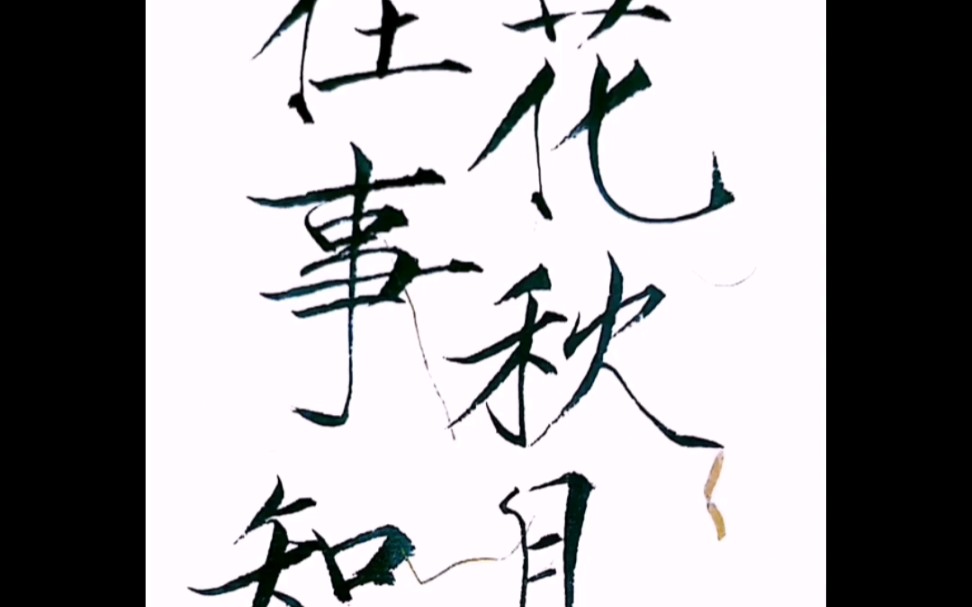 花秋月
往事知